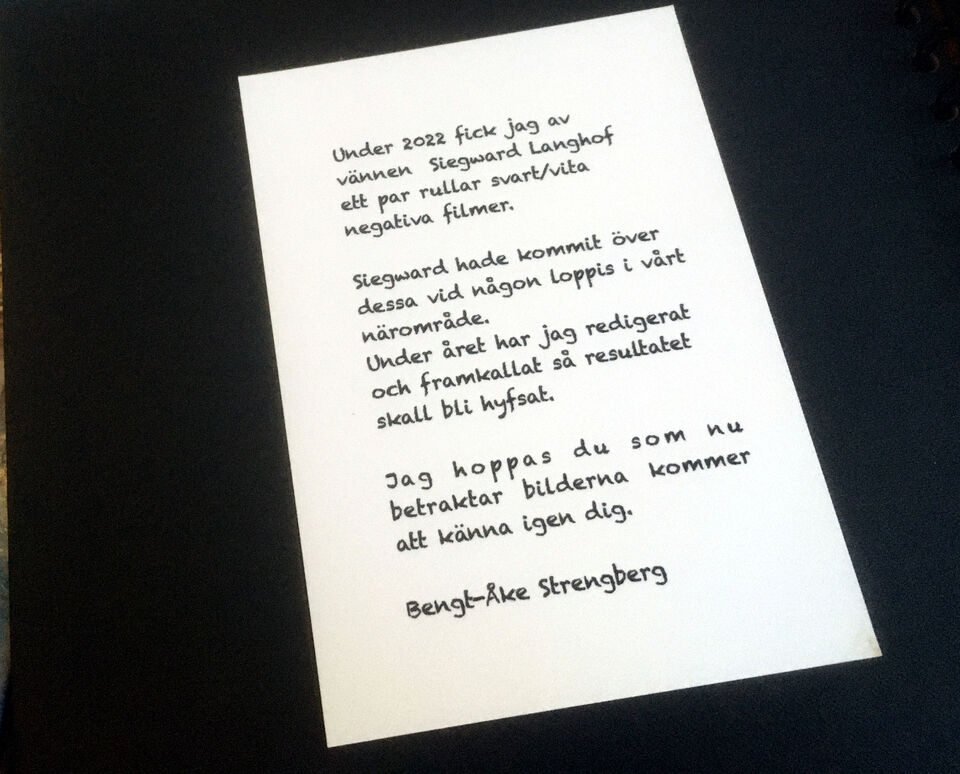 Under 2022 fick jag av
vännen Siegward Langhof
ett par rullar svart/vita
negativa filmer.
Siegward hade kommit över
dessa vid någon loppis i vårt
närområde.
Under året har jag redigerat
och framkallat så resultatet
skall bli hyfsat.
Jag hoppas du som nu
betraktar bilderna kommer
att känna igen dig.
Bengt-Åke Strengberg